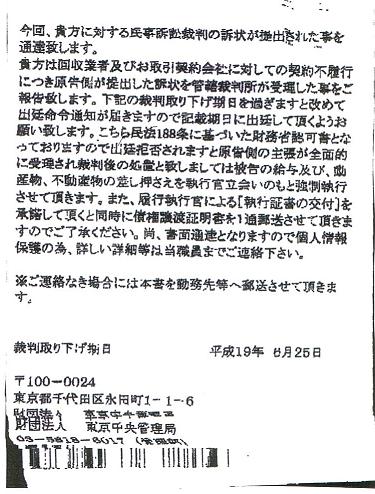 今回、貴方に対する民事訴訟裁判の訴状が提出された事を
通達致します。
貴方は回収業者及びお取引契約会社に対しての契約不履行
につき原告側が提出した訴状を管轄裁判所が受理した事をご
報告致します。下記の裁判取り下げ期日を過ぎますと改めて
出廷命令通知が届きますので記載期日に出廷して頂くようお
願い致します。こちら民法188条に基づいた財務省認可書とな
っておりますので出廷拒否されますと原告側の主張が全面的
に受理され裁判後の処置と致しましては被告の給与及び、動
産物、不動産物の差し押さえを執行官立会いのもと強制執行
させて頂きます。また、履行執行官による【執行証書の交付】を
承諾して頂くと同時に債権譲渡証明書を1通郵送させて頂きま
すのでご了承ください。尚、書面通達となりますので個人情報
保護の為、詳しい詳細等は当職員までご連絡下さい。
※ご連絡なき場合には本書を勤務先等へ郵送させて頂きま
す。
裁判取り下げ期日 平成19年 6月25日
〒100-0024
東京都千代田区永田町1-1-6
財団法人
財団法人 東京中央管理局